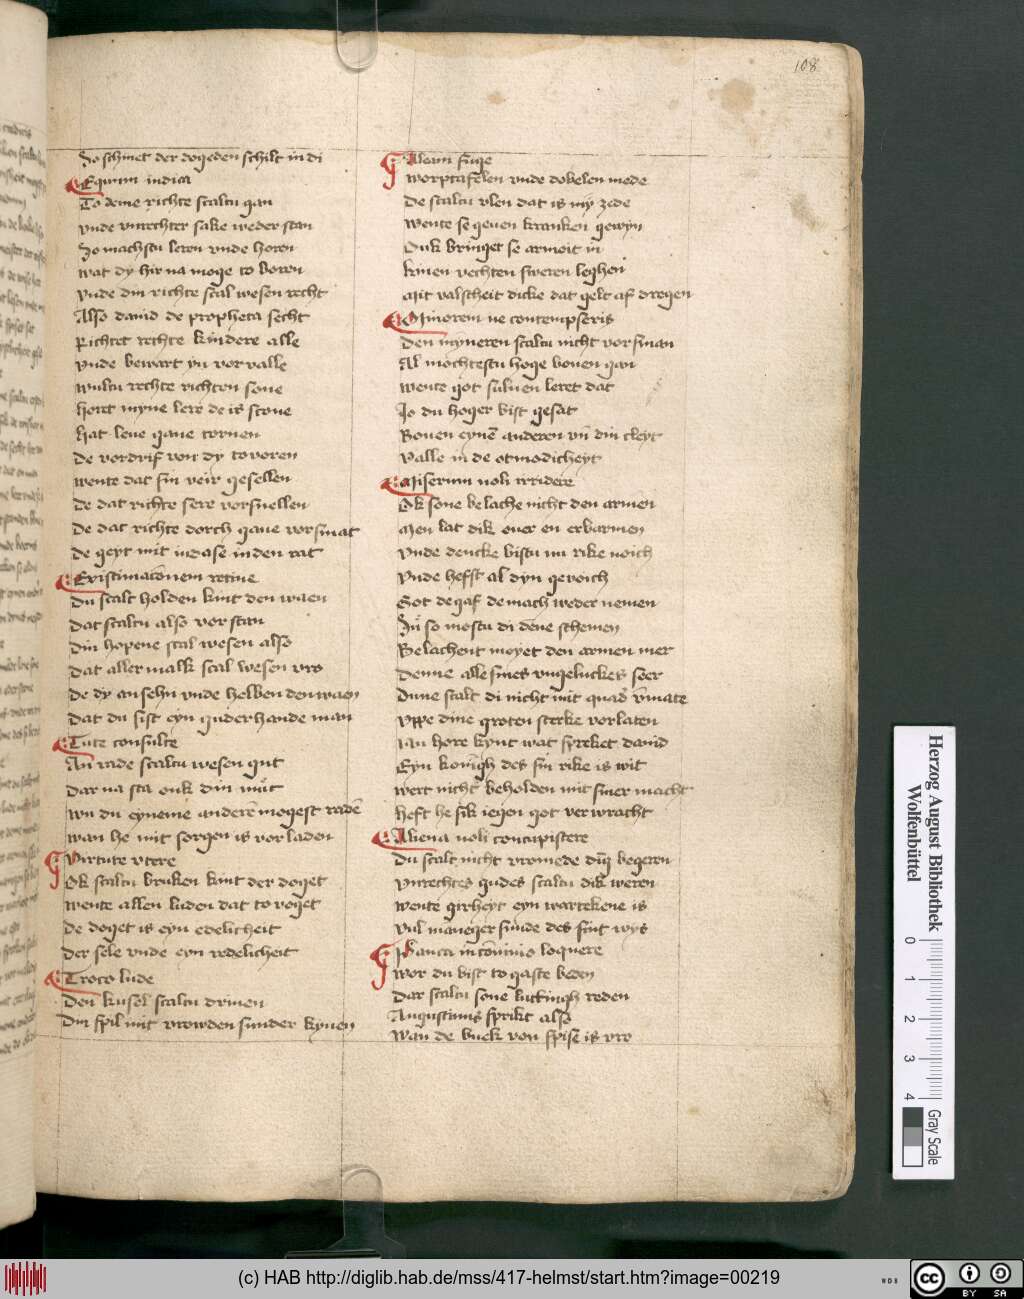 108
So schinet der dogeden schilt in di
Equum iudica
To deme richte scaltu gan
vnde vnrechter sake weder stan
So machstu leren vnde horen
wat dy hir na moge to boren
vnde din richte scal wesen recht
Also dauid de propheta secht
Richtet rechte kindere alle
vnde bewart yu vor valle
wultu rechte richten sone
horet myne lere de is scone
hat leue gaue tornen
De vordrif von dy to voren
wente dat sin veir gesellen
de dat richte sere vorsnellen
De dat richte dorch gaue vorsmat
de geyt mit iudase in den rat
Existimacionem retine
Du scalt holden kint den waen
Dat scaltu also vor stan
Din hopene scal wesen also
Dat aller malk scal wesen vro
De dy an sehn vnde hebben den waen
Dat du sist eyn guderhande man
Tute consulte
An rade scaltu wesen gut
Dar na sta ouk din mut
wu du eyneme anderen mogest raden
wan he mit sorgen is vorladen
Virtute vtere
Ok scaltu bruken kint der doget
wente allen luden dat to voget
De doget is eyn edelicheit
Der sele vnde eyn redelicheit
Troco lude
Den kusel scaltu driuen
Din spil mit vrowden sunder kyuen
Aleam fuge
worptafelen vnde dobelen mede
De scaltu vlen dat is my zede
wente se geuen kranken gewyn
Ouk bringet se armoit in
kiuen vechten sweren leghen
Mit valscheit dicke dat gelt af dregen
Minorem ne contempseris
Den mynneren scaltu nicht vorsman
Al mochtestu hoge bouen gan
wente got suluen leret dat
Jo du hoger bist gesat
Bouen eynen anderen vn din cleyt
Valle in de otmodicheyt
Miserum noli irridere
Ok sone belache nicht den armen
Men lat dik ouer en erbarmen
vnde dencke bistu nu rike noich
vnde hefst al dyn gevoich
Got de gaf de mach weder nemen
So mostu di dene schemen
Belachent moyet den armen mer
Denne alle sines vngeluckes seer
Vppe dine groten sterke vorlaten
Nu hore kynt wat spreket dauid
Eyn konigh des sin rike is wit
wert nicht beholden mit siner macht
heft he sik iegen got verwracht
Aliena noli concupiscere
Du scalt nicht vromede ding begeren
vnrechtes gudes scaltu dik weren
wente girheyt eyn wartekene is
vul maneger sunde des sint wys
Pauca in conuiuio loquere
wor du bist to gaste beden
Dar scaltu sone luttingh reden
Augustinus sprikt also
wan de buck von spise is vro
Herzog August Bibliothek
Wolfenbüttel
0 1 2 3 4
Gray Scale
(c) HAB http://diglib.hab.de/mss/417-helmst/start.htm?image=00219
WDB
CC BY SA